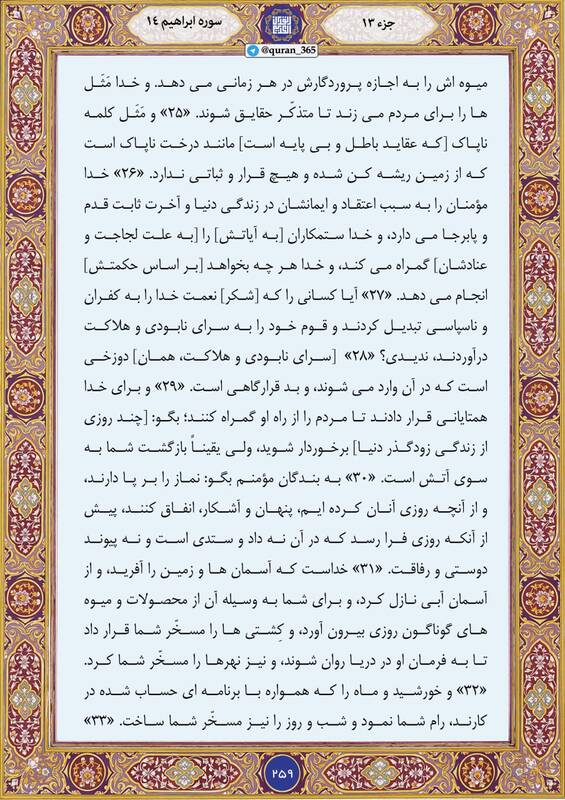 جزء ۱۳
سوره ابراهیم ۱۴
@quran_365
میوه اش را به اجازه پروردگارش در هر زمانی می دهد. و خدا مَثَل
ها را برای مردم می زند تا متذکّر حقایق شوند. «۲۵» و مَثَل کلمه
ناپاک [که عقاید باطل و بی پایه است] مانند درخت ناپاک است
که از زمین ریشه کن شده و هیچ قرار و ثباتی ندارد. «۲۶» خدا
مؤمنان را به سبب اعتقاد و ایمانشان در زندگی دنیا و آخرت ثابت قدم
و پابرجا می دارد، و خدا ستمکاران [به آیاتش] را [به علت لجاجت و
عنادشان] گمراه می کند، و خدا هر چه بخواهد [بر اساس حکمتش]
انجام می دهد. «۲۷» آیا کسانی را که [شکر] نعمت خدا را به کفران
و ناسپاسی تبدیل کردند و قوم خود را به سرای نابودی و هلاکت
درآوردند، ندیدی؟ «۲۸» [سرای نابودی و هلاکت، همان] دوزخی
است که در آن وارد می شوند، و بد قرارگاهی است. «۲۹» و برای خدا
همتایانی قرار دادند تا مردم را از راه او گمراه کنند؛ بگو: [چند روزی
از زندگی زودگذر دنیا] برخوردار شوید، ولی یقیناً بازگشت شما به
سوی آتش است. «۳۰» به بندگان مؤمنم بگو: نماز را بر پا دارند،
و از آنچه روزی آنان کرده ایم، پنهان و آشکار، انفاق کنند، پیش
از آنکه روزی فرا رسد که در آن نه داد و ستدی است و نه پیوند
دوستی و رفاقت. «۳۱» خداست که آسمان ها و زمین را آفرید، و از
آسمان آبی نازل کرد، و برای شما به وسیله آن از محصولات و میوه
های گوناگون روزی بیرون آورد، و کِشتی ها را مسخّر شما قرار داد
تا به فرمان او در دریا روان شوند، و نیز نهرها را مسخّر شما کرد.
«۳۲» و خورشید و ماه را که همواره با برنامه ای حساب شده در
کارند، رام شما نمود و شب و روز را نیز مسخّر شما ساخت. «۳۳»
۲۵۹